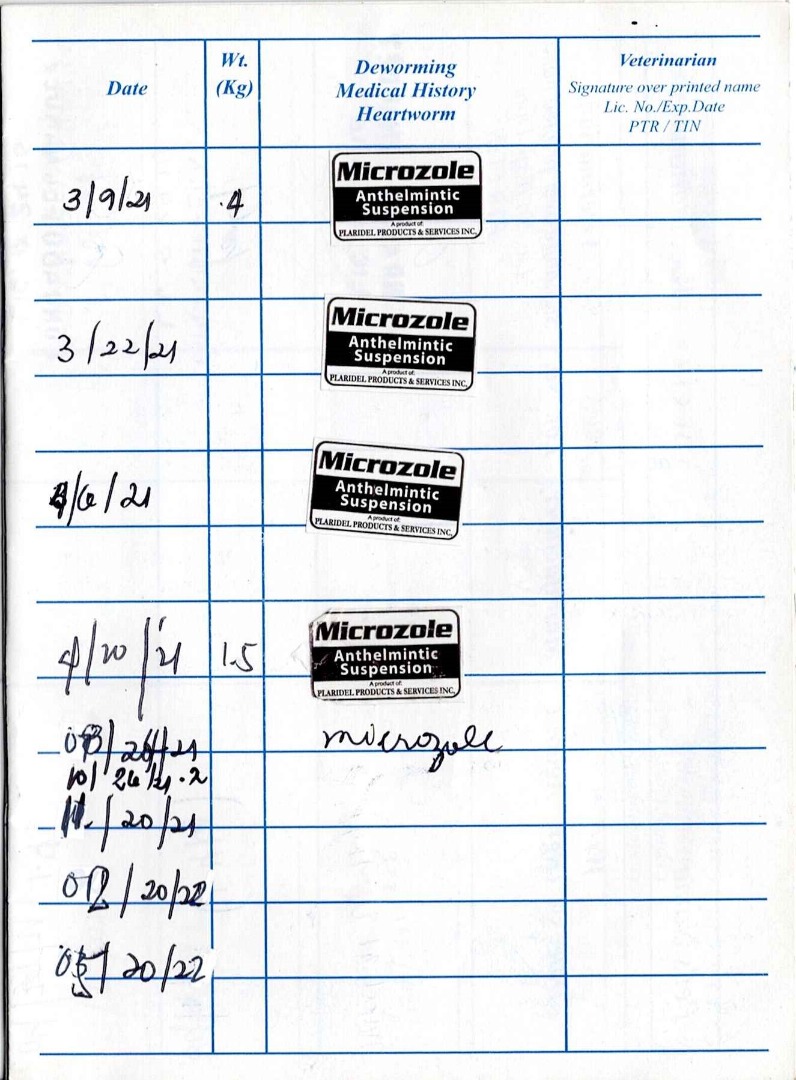 Date
Wt.
(Kg)
Deworming
Medical History
Heartworm
Veterinarian
Signature over printed name
Lic. No./Exp.Date
PTR / TIN
3/9/21 .4
Microzole
Anthelmintic
Suspension
A product of:
PLARIDEL PRODUCTS & SERVICES INC.
3/22/21
Microzole
Anthelmintic
Suspension
A product of:
PLARIDEL PRODUCTS & SERVICES INC.
4/6/21
Microzole
Anthelmintic
Suspension
A product of:
PLARIDEL PRODUCTS & SERVICES INC.
4/20/21 1.5
Microzole
Anthelmintic
Suspension
A product of:
PLARIDEL PRODUCTS & SERVICES INC.
microzole
10/26/21 .2
11/20/21
02/20/22
05/20/22